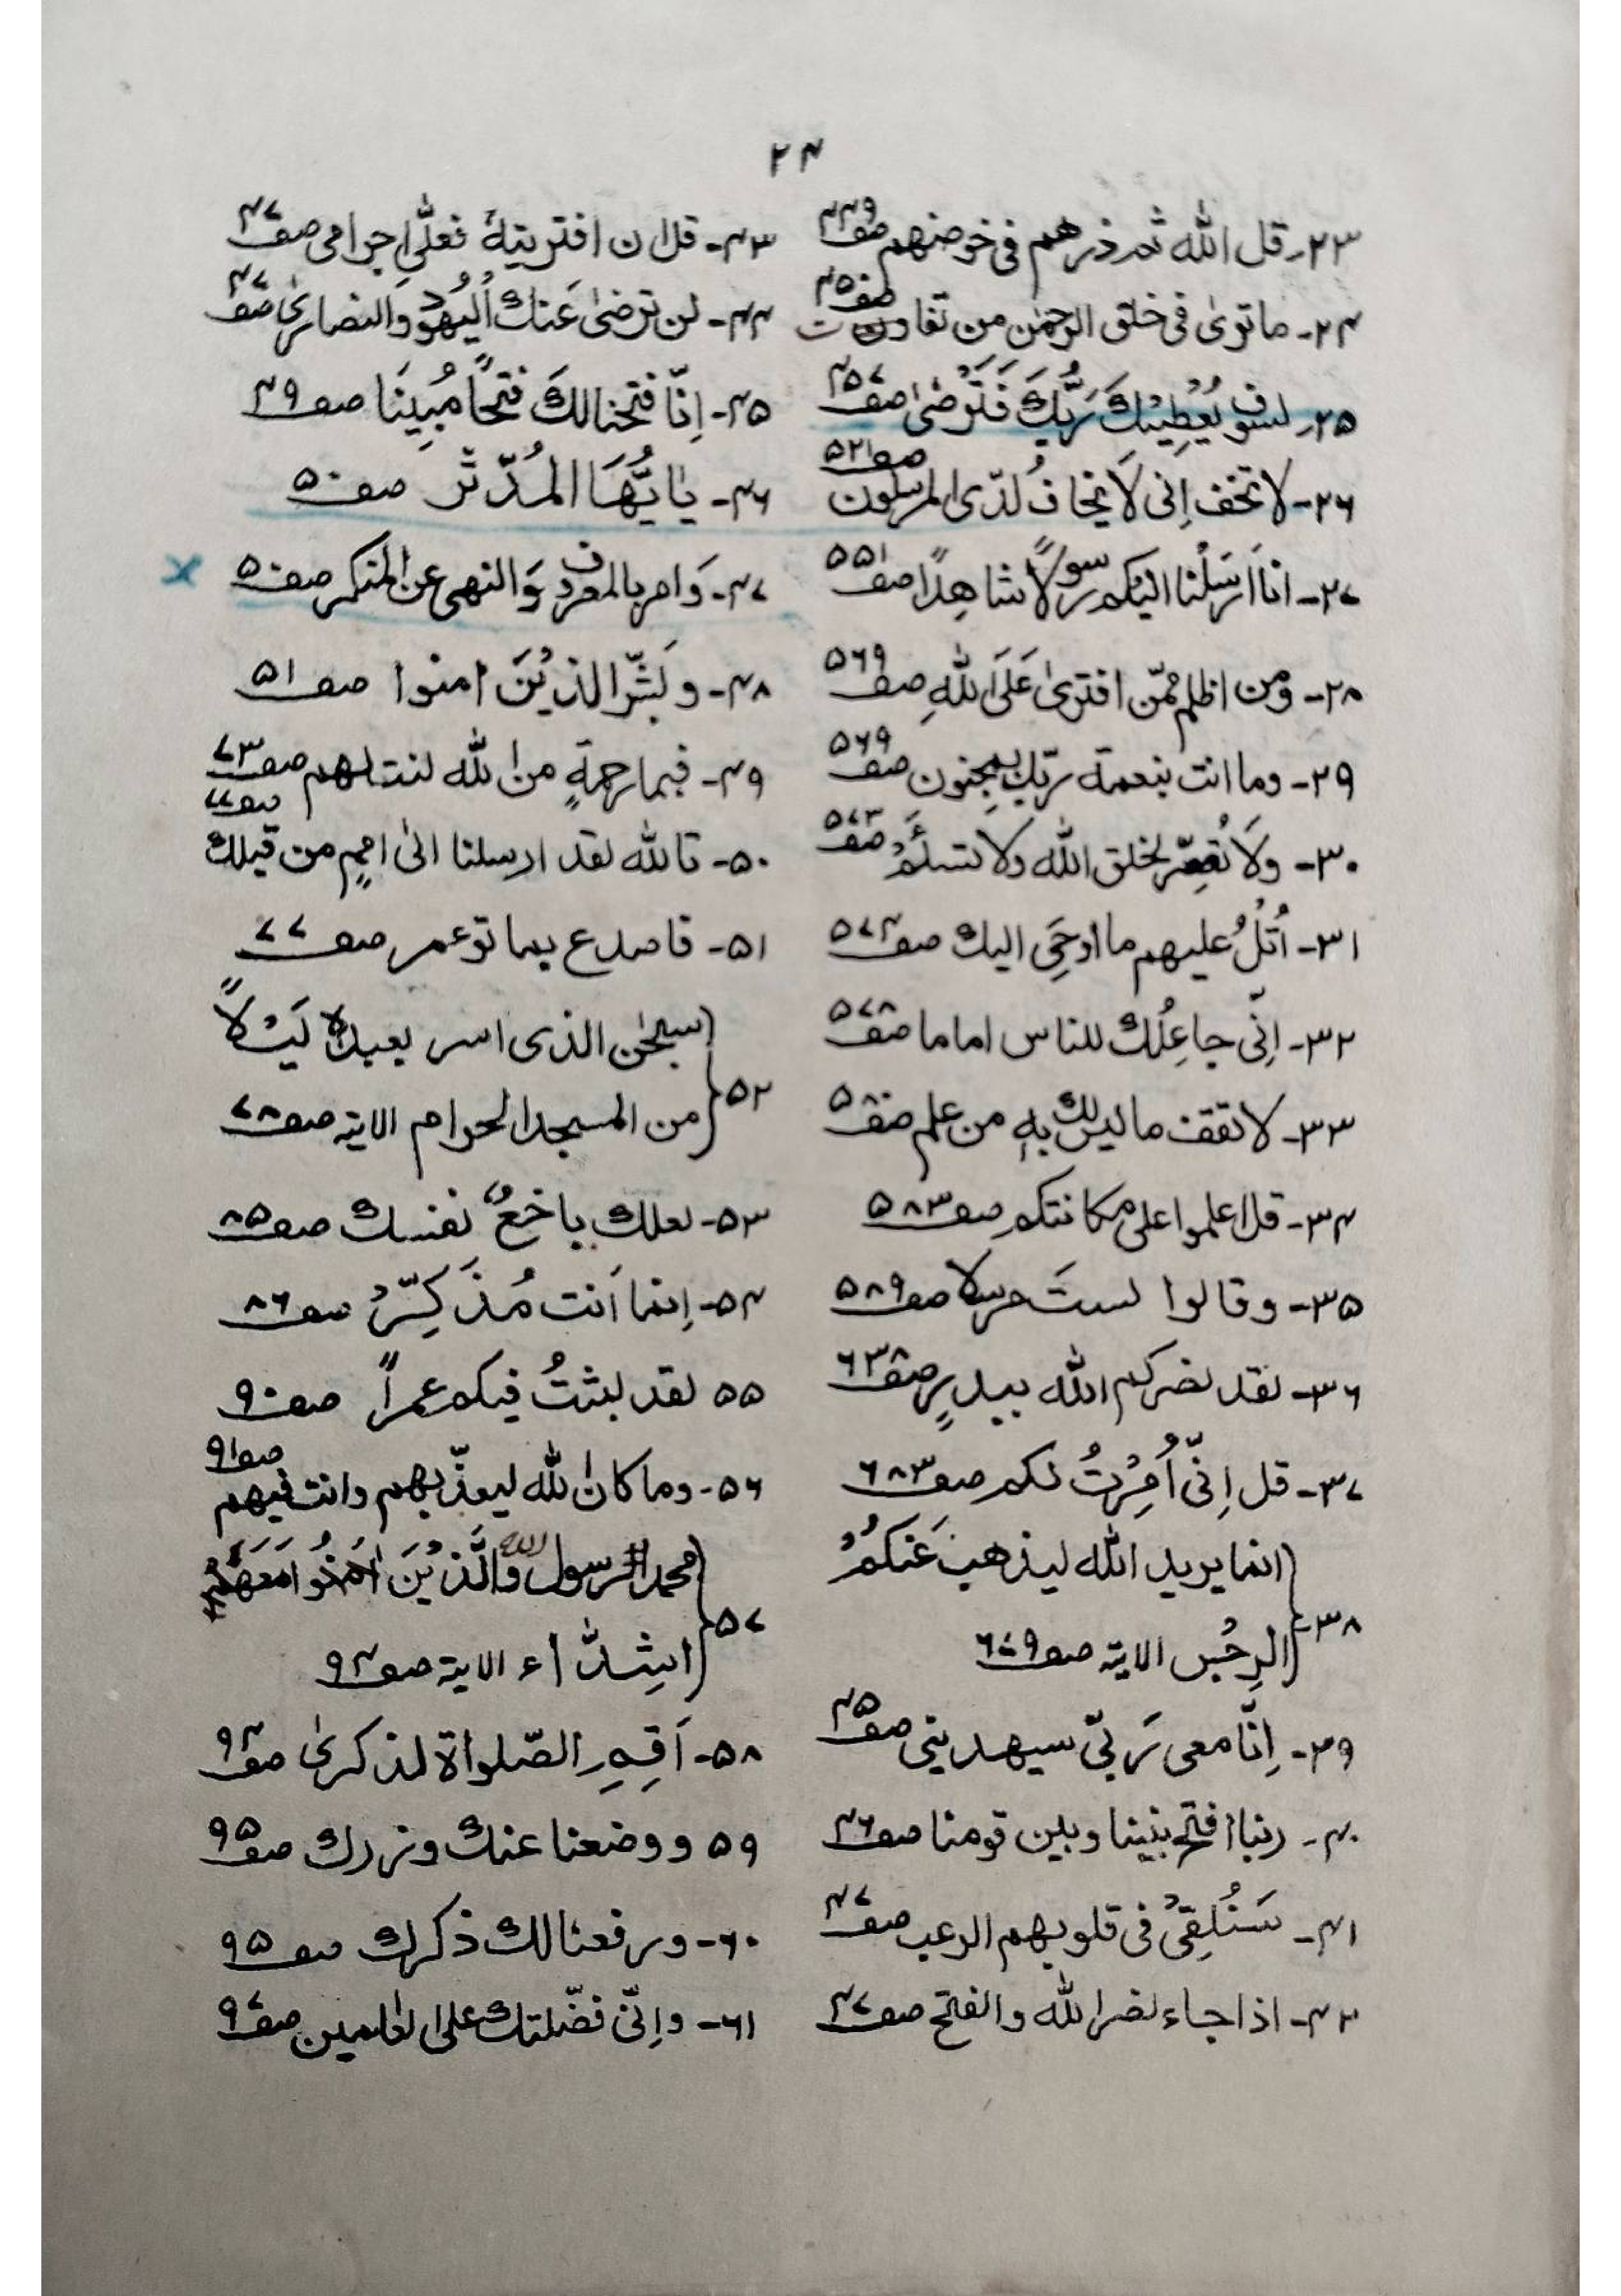 ۲۴
۲۳۔ قل اللہ ثم ذرھم فی خوضھم صفہ ۴۴۹
۲۴۔ ماتریٰ فی خلق الرحمٰن من تفاوت صفہ ۴۵۰
۲۵۔ لسوف یُعْطِیْکَ رَبُّکَ فَتَرْضٰی صفہ ۴۵۷
۲۶۔ لا تخف اِنی لَا یخافُ لدَی المرسلون صفہ ۵۲۱
۲۷۔ انا اَرْسَلْنا الیکم رسولًا شاھِدًا صفہ ۵۵۱
۲۸۔ ومن اظلم ممّن افتریٰ عَلَی اللہِ صفہ ۵۶۹
۲۹۔ وما انت بنعمة ربّک بمجنون صفہ ۵۶۹
۳۰۔ ولَا تُصَعِّر لخلق اللہ ولا تسئَمْ صفہ ۵۷۳
۳۱۔ اُتْلُ علیھم ما اوحِیَ الیک صفہ ۵۷۴
۳۲۔ اِنّی جاعِلُک للناس اماما صفہ ۵۷۸
۳۳۔ لا تقف مالیس لک بہٖ من علم صفہ ۵۸۰
۳۴۔ قل اعلموا علی مکانتکم صفہ ۵۸۳
۳۵۔ وقالوا لستَ مرسلا صفہ ۵۸۹
۳۶۔ لقد نصرکم اللہ ببدرٍ صفہ ۶۳۸
۳۷۔ قل اِنّی اُمِرْتُ لکم صفہ ۶۸۳
انما یرید اللہ لیذھبَ عَنکُمُ
۳۸۔ الرِجْس الایة صفہ ۶۷۹
۳۹۔ اِنَّ معی رَبّی سیھدینی صفہ ۴۵
۴۰۔ ربنا افتح بیننا وبین قومنا صفہ ۴۶
۴۱۔ سَنُلْقِیْ فی قلوبھم الرعب صفہ ۴۷
۴۲۔ اذا جاء نصر اللہ والفتح صفہ ۴۷
۴۳۔ قل ان افتریتہٗ فعلَّی اِجرامی صفہ ۴۷
۴۴۔ لن ترضٰی عَنک اَلیَھُوْدُ وَالنصاریٰ صفہ ۴۷
۴۵۔ اِنَّا فتحنا لکَ فتحًا مُبِینَا صفہ ۴۹
۴۶۔ یٰایُّھَا المُدَّثّر صفہ ۵۰
۴۷۔ وَامر بالمعروف وَالنھی عن المنکر صفہ ۵۰
۴۸۔ وبَشِّر الذیْنَ امنوا صفہ ۵۱
۴۹۔ فبما رحمةٍ من اللہ لنت لھم صفہ ۷۳
۵۰۔ تاللہ لقد ارسلنا الیٰ اممٍ من قبلک صفہ ۷۷
۵۱۔ فاصدع بما توعمر صفہ ۷۷
سبحٰن الذی اسر بعبدہٖ لَیْلًا
۵۲ من المسجد الحرام الایة صفہ ۷۸
۵۳۔ لعلک باخعٌ نفسک صفہ ۸۵
۵۴۔ اِنما اَنت مُذَکِّرْ صفہ ۸۶
۵۵ لقد لبثتُ فیکم عمراً صفہ ۹۰
۵۶۔ وما کان اللہ لیعذّبھم وانت فیھم صفہ ۹۱
محمد الرسول اللہ وَالَّذِیْنَ اٰمَنُوا مَعَھٗ
۵۷ اشِدّاء الایة صفہ ۹۴
۵۸۔ اَقِمِ الصّلواۃ لذکریٰ صفہ ۹۴
۵۹ ووضعنا عنک وزرک صفہ ۹۵
۶۰۔ ورفعنا لک ذکرک صفہ ۹۵
۶۱۔ واِنّی فضّلتک علی العٰلمین صفہ ۹۷